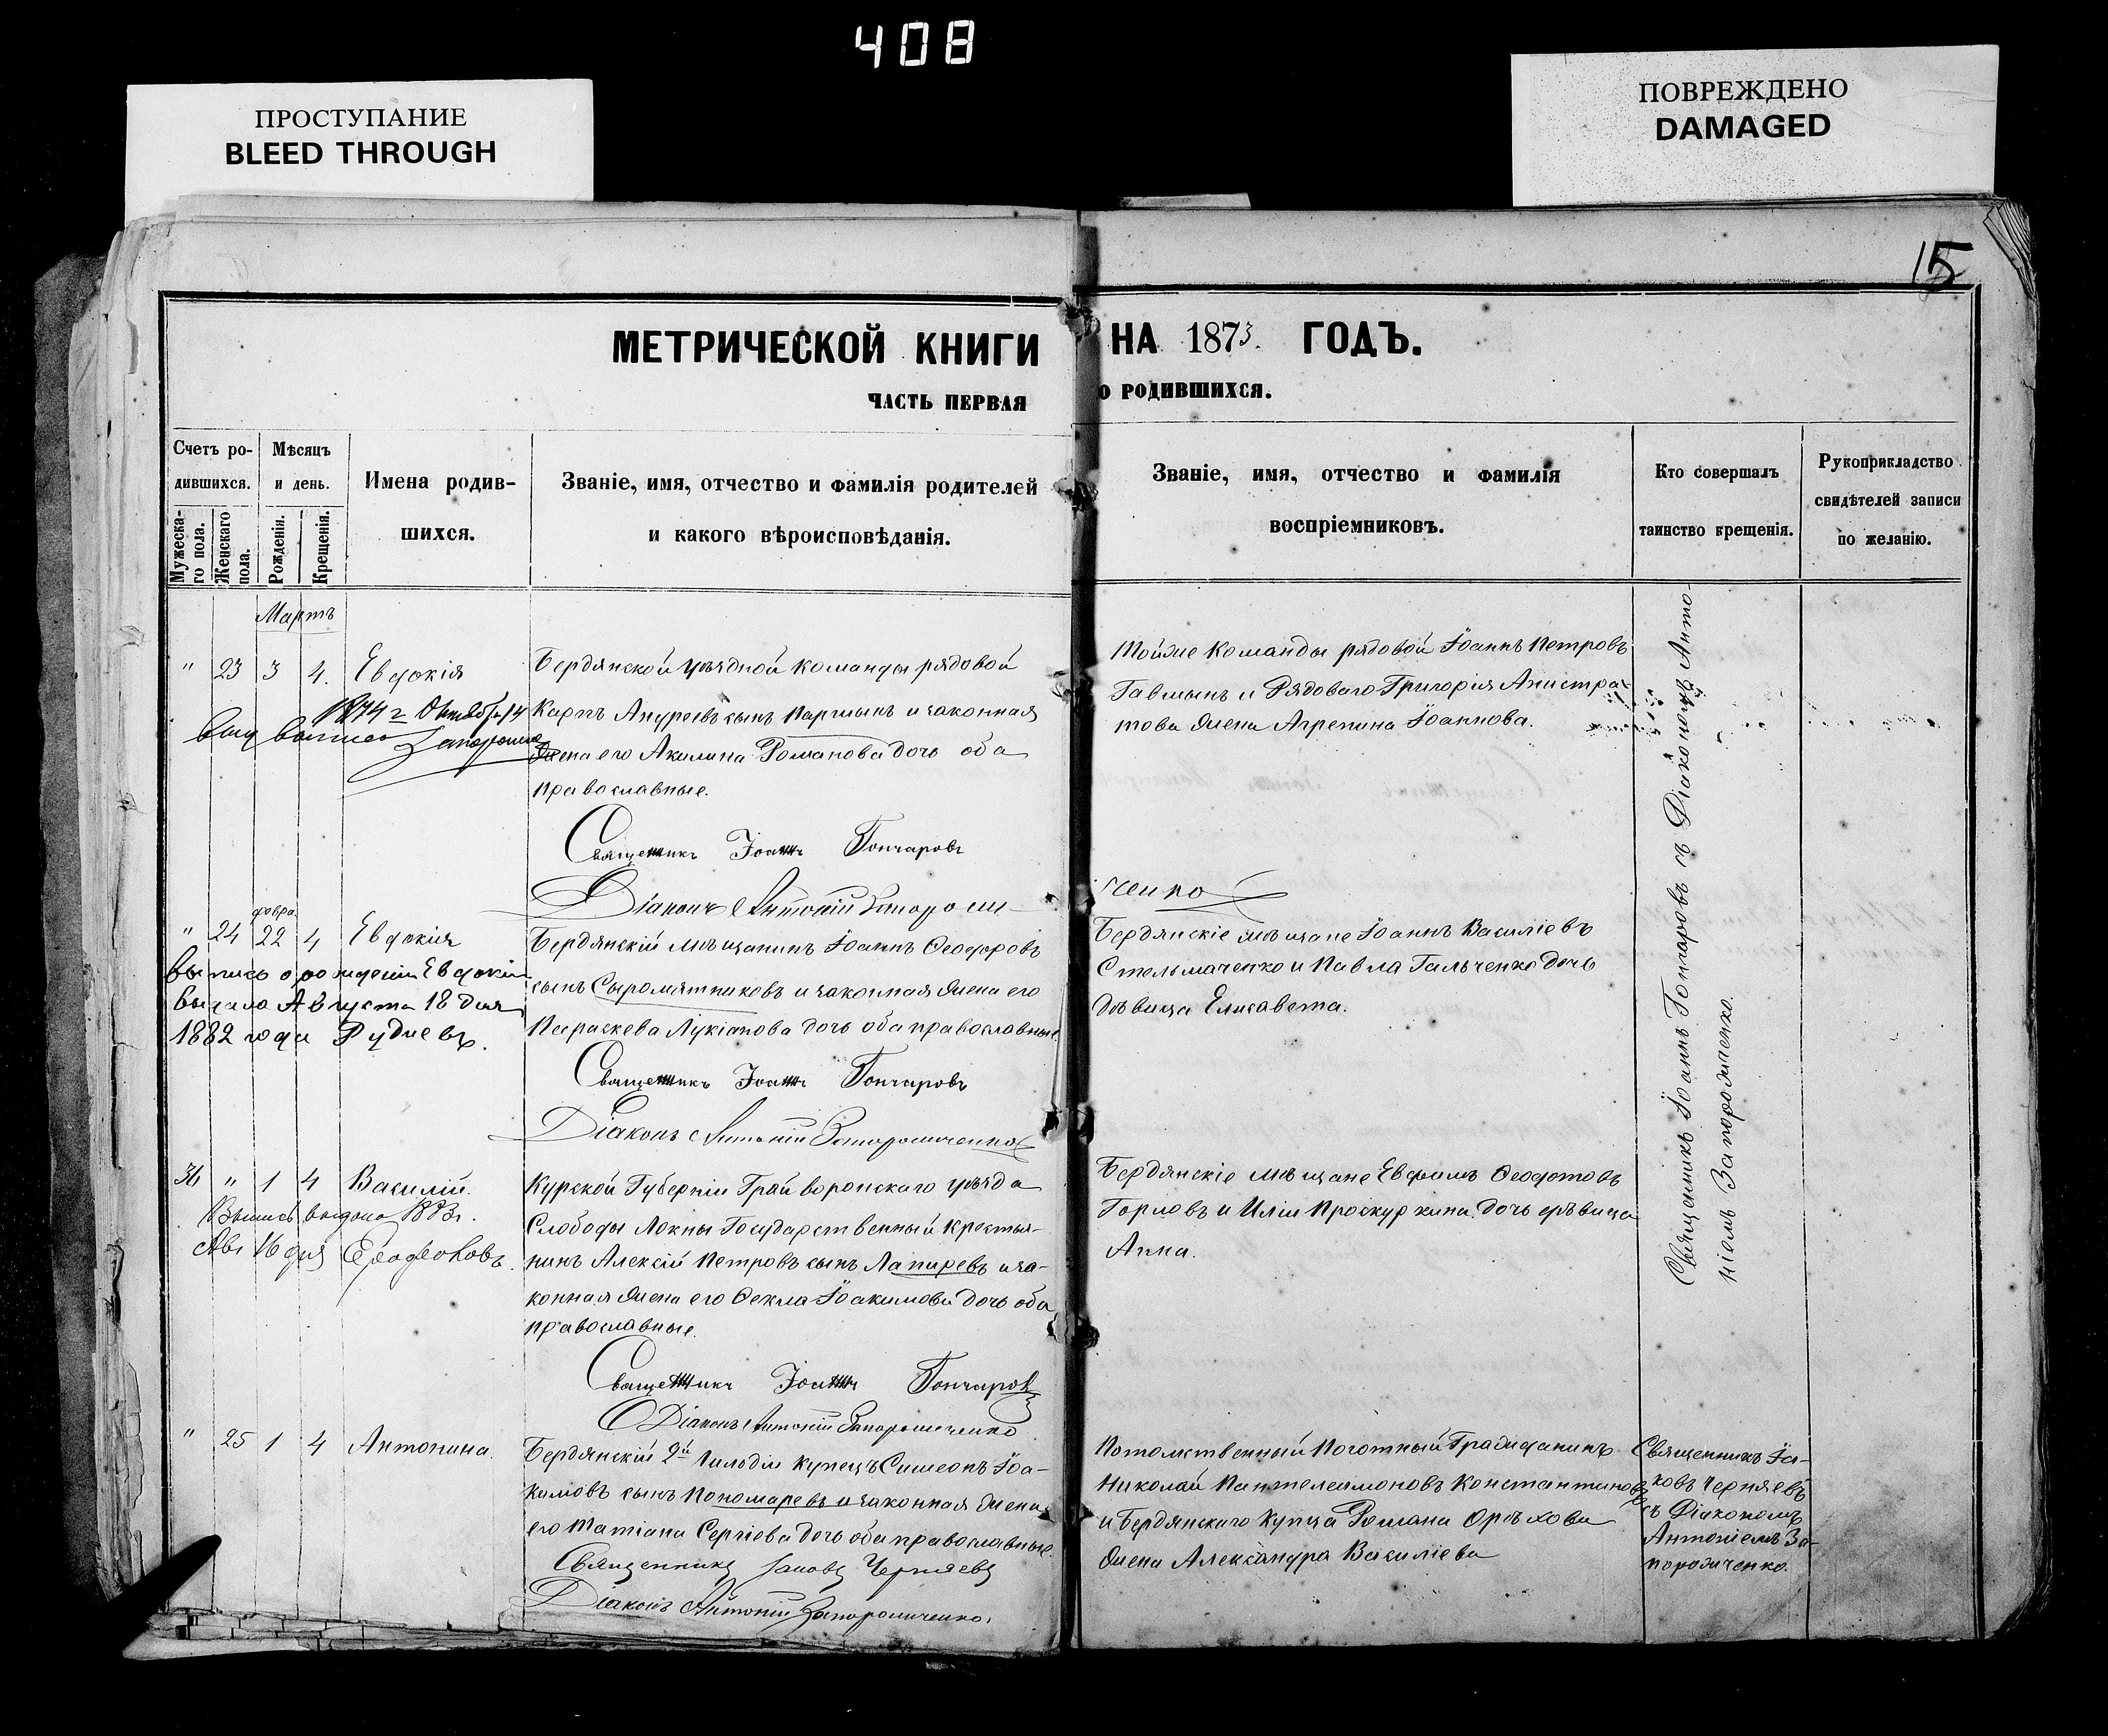 408
ПРОСТУПАНИЕ
BLEED THROUGH
ПОВРЕЖДЕНО
DAMAGED
15
МЕТРИЧЕСКОЙ КНИГИ НА 1873. ГОДЪ.
ЧАСТЬ ПЕРВАЯ О РОДИВШИХСЯ.
Счетъ ро-
дившихся.
Мужеска-
го пола.
Женскаго
пола.
Мѣсяцъ
и день.
Рожденія.
Крещенія.
Имена родив-
шихся.
Званіе, имя, отчество и фамилія родителей
и какого вѣроисповѣданія.
Званіе, имя, отчество и фамилія
воспріемниковъ.
Кто совершалъ
таинство крещенія.
Рукоприкладство
свидѣтелей записи
по желанію.
Мартъ
" 23 3 4. Евдокія
1874 г Октяб. 14
Бердянской уѣздной команды рядовой
Карпъ Андреевъ сынъ Паршынъ и законная
жена его Акилина Романова дочь оба
православные.
Священникъ Іоаннъ Гончаровъ
Діаконъ Антоній Запорож
ченко
Тойже команды рядовой Іоаннъ Петровъ
Гавшынъ и Рядоваго Григорія Анистра-
това жена Агрепина Іоаннова.
Священникъ Іоаннъ Гончаровъ съ Діакономъ Анто-
ніемъ Запорожченко.
февра.
" 24 22 4 Евдокія
Выпись о рождении Евдокіи
выдана Августа 18 дня
1882 года Рудневъ.
Бердянскій мѣщанинъ Іоаннъ Ѳеодоровъ
сынъ Сыромятниковъ и законная жена его
Параскева Лукіанова дочь оба православные.
Священникъ Іоаннъ Гончаровъ
Діаконъ Антоній Запорожченко
Бердянскіе мѣщане Іоаннъ Василіевъ
Стельмаченко и Павла Гальченко дочь
дѣвица Елисавета.
36 " 1 4 Василій.
Выпись выдана 1883 г.
Авг 16 дня
Курской Губерніи Грайворонскаго уѣзда
Слободы Локны Государственный крестья-
нинъ Алексій Петровъ сынъ Лапиревъ и за-
конная жена его Ѳекла Іоакимова дочь оба
православные.
Священникъ Іоаннъ Гончаровъ
Діаконъ Антоній Запорожченко
Бердянскіе мѣщане Евфимъ Ѳеодотовъ
Горловъ и Иліи Проскуркина дочь дѣвица
Анна.
" 25 1 4 Антонина.
Бердянскій 2й Гильдіи купецъ Симеонъ Іоа-
кимовъ сынъ Пономаревъ и законная жена
его Татіана Сергіева дочь оба православные.
Священникъ Іаковъ Черняевъ
Діаконъ Антоній Запорожченко.
Потомственный Почотный Гражданинъ
Николай Пантелеимоновъ Константиновъ
и Бердянскаго купца Романа Орѣхова
жена Александра Василіева
Священникъ Іа-
ковъ Черняевъ
съ Діакономъ
Антоніемъ За-
порожченко.